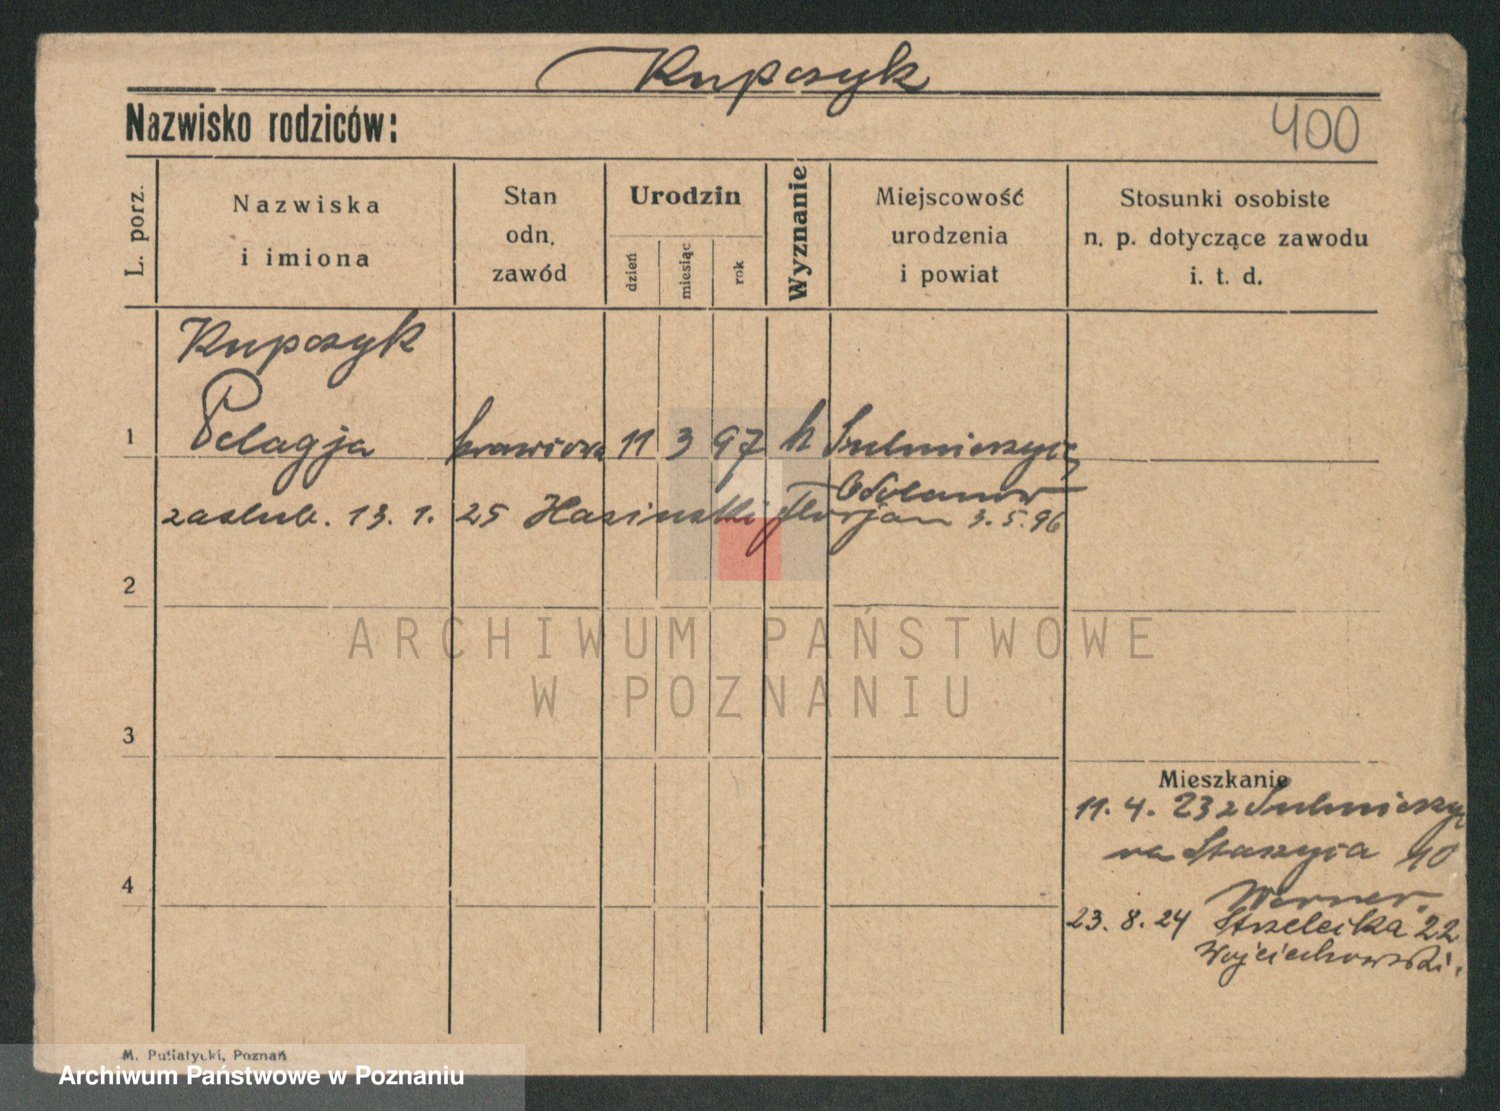 Kupczyk
Nazwisko rodziców:
400
L. porz.
Nazwiska
i imiona
Stan
odn.
zawód
Urodzin
dzień
miesiąc
rok
Wyznanie
Miejscowość
urodzenia
i powiat
Stosunki osobiste
n. p. dotyczące zawodu
i. t. d.
Kupczyk
1 Pelagja krawcowa 11 3 97 k Sulmierzyce
Odolanów
zaślub. 13. 1. 25 Hasiński Florjan 3.5.96
2
ARCHIWUM PAŃSTWOWE
W POZNANIU
3
Mieszkanie
11. 4. 23 z Sulmierzyc
na Staszyca 10
4
Werner.
23. 8. 24 Strzelecka 22
Wojciechowski.
M. Putiatycki, Poznań
Archiwum Państwowe w Poznaniu